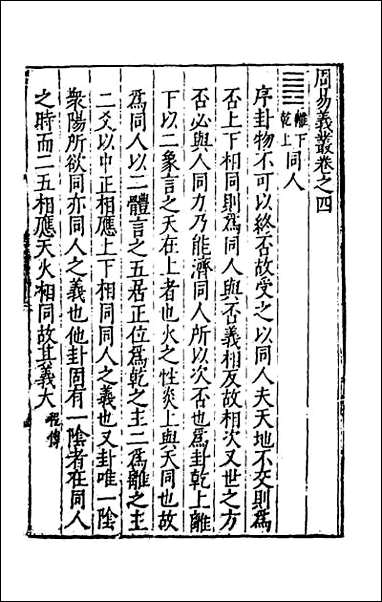 周易義叢卷之四
離下乾上同人
序卦物不可以終否故受之以同人夫天地不交則爲
否上下相同則爲同人與否義相反故相次又世之方
否必與人同力乃能濟同人所以次否也爲卦乾上離
下以二象言之天在上者也火之性炎上與天同也故
爲同人以二體言之五居正位爲乾之主二爲離之主
二爻以中正相應上下相同同人之義也又卦唯一陰
衆陽所欲同亦同人之義也他卦固有一陰者在同人
之時而二五相應天火相同故其義大程傳